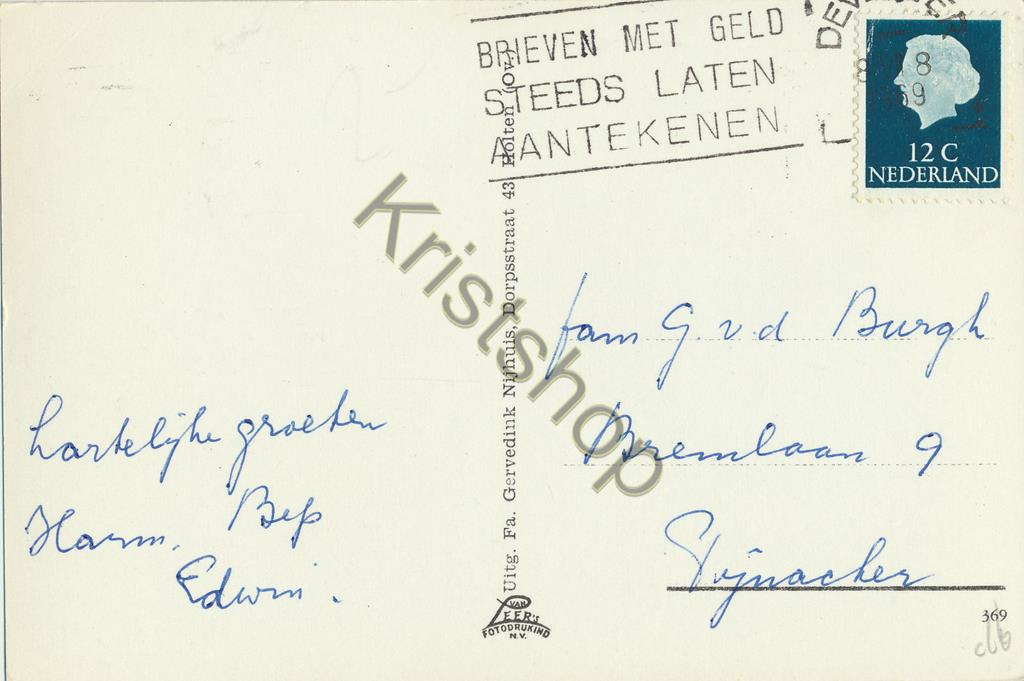 BRIEVEN MET GELD
STEEDS LATEN
AANTEKENEN
8 1969
12 C
NEDERLAND
Kristshop
Uitg. Fa. Gervedink Nijhuis, Dorpsstraat 43 Holten (Ov.)
hartelijke groeten
Harm. Bep
Edwin.
fam G. v. d Burgh
Bremlaan 9
Pijnacker
VAN
LEER'S
FOTODRUKIND
N.V.
369